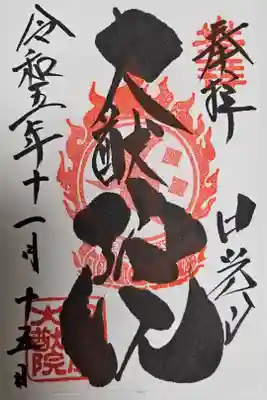 奉拝
日光山
大猷院
令和五年十一月十五日
大猷院